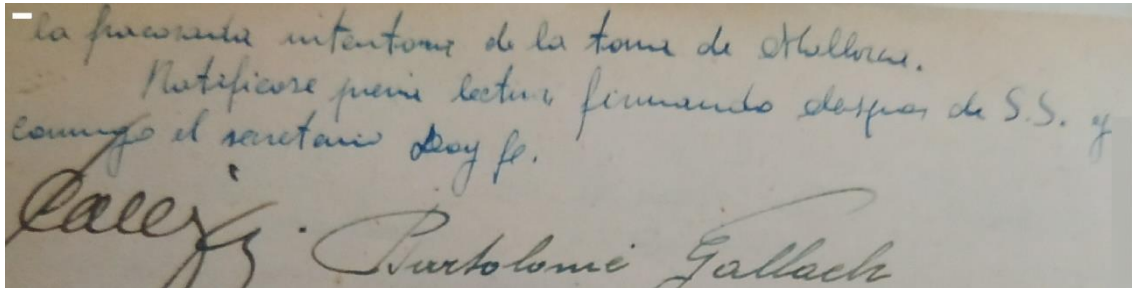 la fracasada intentona de la toma de Mallorca.
Ratificose previa lectura firmando despues de S.S. y
conmigo el secretario Doy fe.
Bartolomé Gallach